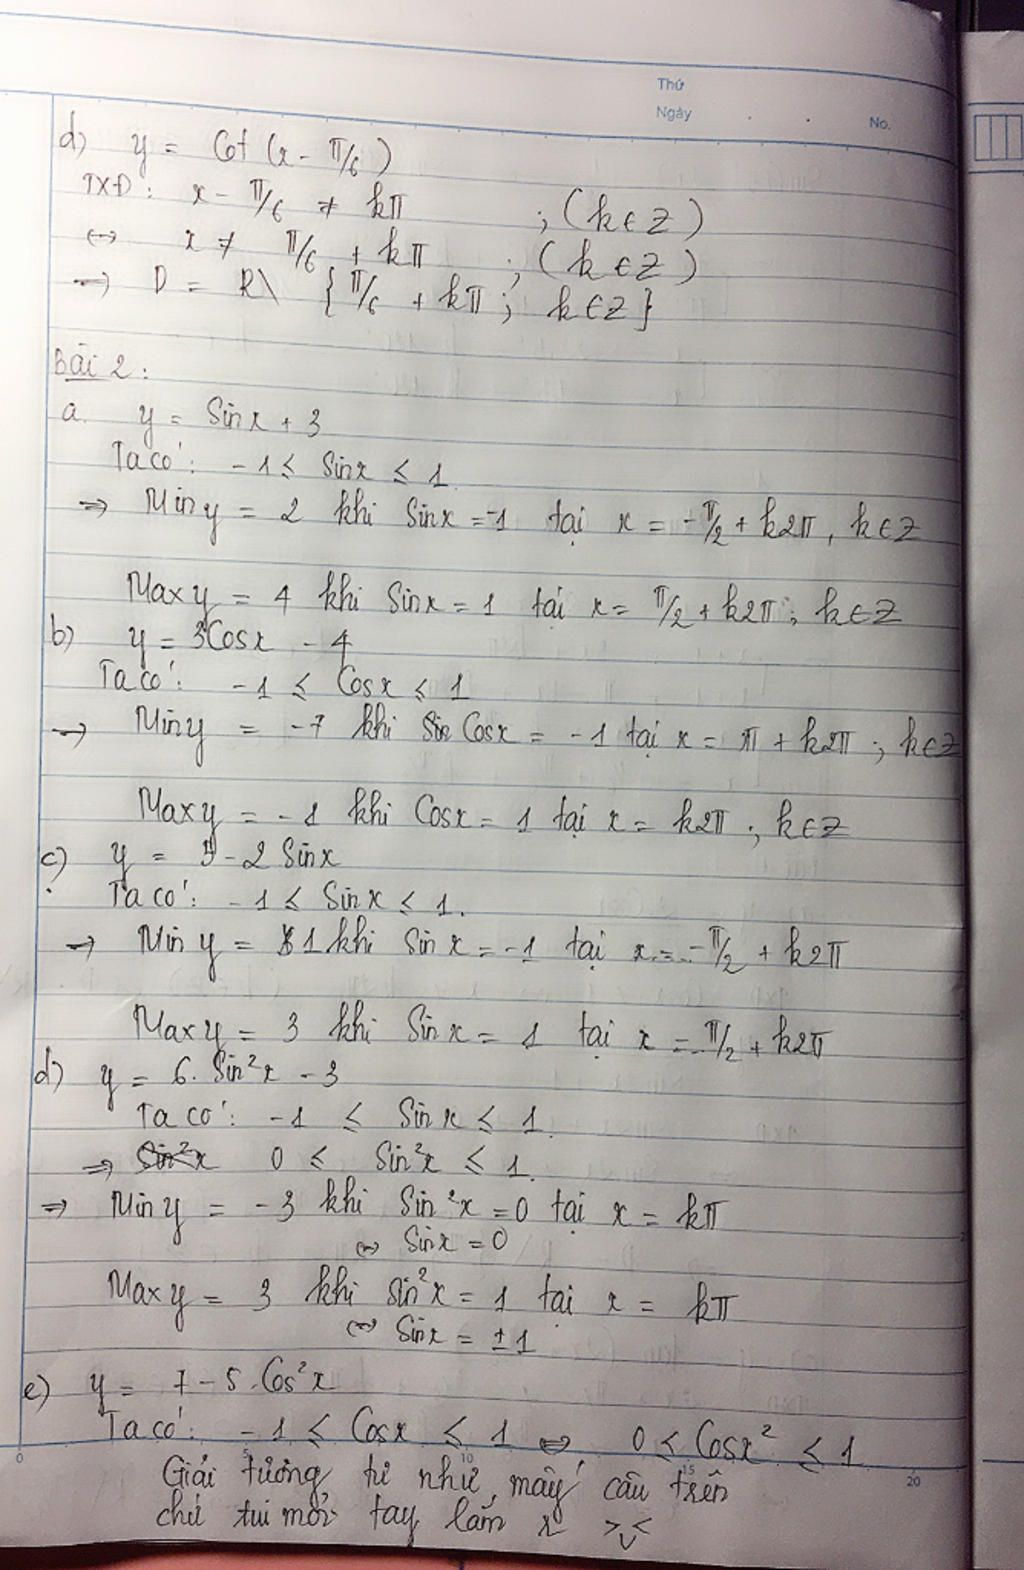 Thứ
Ngày
No.
d) y = Cot (x - π/6)
TXĐ: x - π/6 ≠ kπ ; (k ∈ Z)
<=> x ≠ π/6 + kπ ; (k ∈ Z)
=> D = R\ {π/6 + kπ ; k ∈ Z}
Bài 2:
a. y = Sinx + 3
Ta có: -1 ≤ Sinx ≤ 1
=> Min y = 2 khi Sinx = -1 tại x = -π/2 + k2π, k ∈ Z
Max y = 4 khi Sinx = 1 tại x = π/2 + k2π; k ∈ Z
b) y = 3Cosx - 4
Ta có: -1 ≤ Cosx ≤ 1
=> Min y = -7 khi Cosx = -1 tại x = π + k2π; k ∈ Z
Max y = -1 khi Cosx = 1 tại x = k2π; k ∈ Z
c) y = - 2 Sinx
Ta có: -1 ≤ Sinx ≤ 1.
=> Min y = 1 khi Sin x = -1 tại x = -π/2 + k2π
Max y = 3 khi Sinx = 1 tại x = π/2 + k2π
d) y = 6. Sin²x - 3
Ta có: -1 ≤ Sinx ≤ 1.
=> Sin²x 0 ≤ Sin²x ≤ 1.
=> Min y = -3 khi Sin²x = 0 tại x = kπ
<=> Sinx = 0
Max y = 3 khi sin²x = 1 tại x = kπ
<=> Sinx = ±1
e) y = 7 - 5.Cos²x
Ta có: -1 ≤ Cosx ≤ 1 <=> 0 ≤ Cosx² ≤ 1
0 5 10 15 20
Giải tương tự như mấy câu trên
chứ tui mỏi tay lắm r >v<